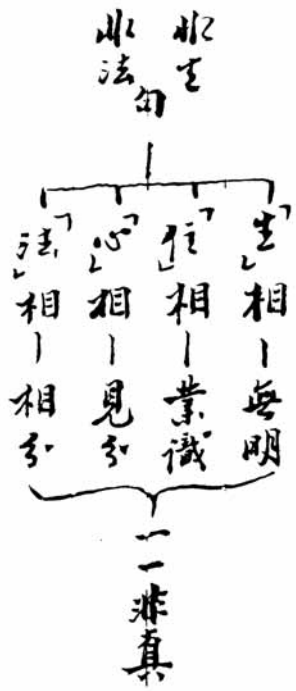 非生
非法
句
「生」相—無明
「住」相—業識
「心」相—見分
「法」相—相分
一一非真